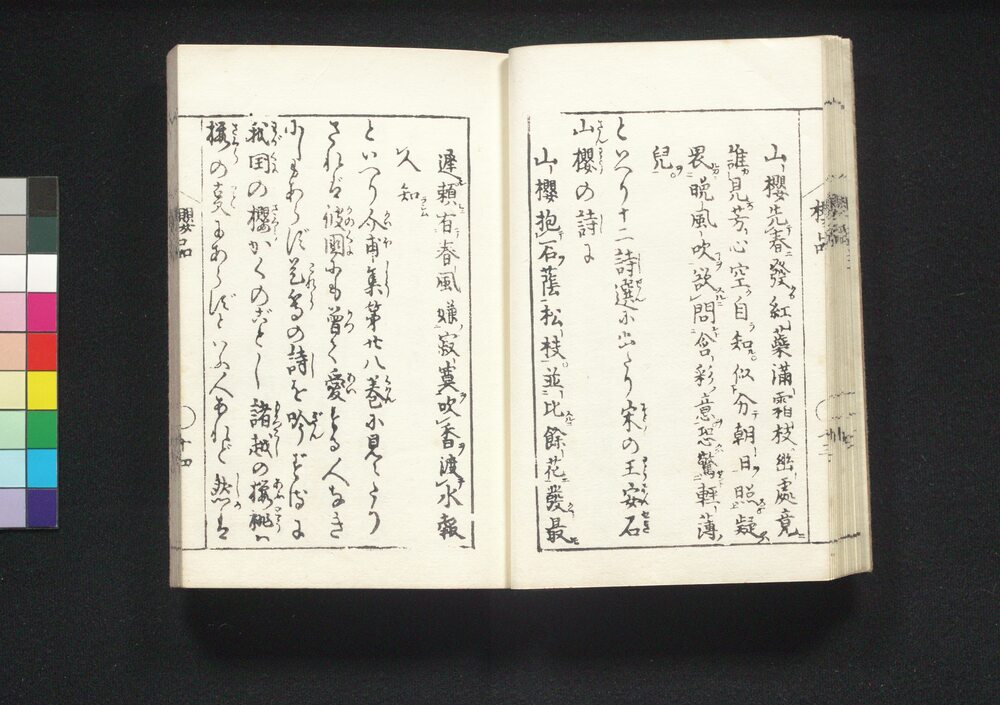 山櫻先春發紅蘂滿霜枝幽處竟
誰見芳心空自知似分朝日照疑
畏晩風吹欲問含彩意恐驚輕薄
兒
といへり十二詩選に出たり宋の王安石
山櫻の詩に
山櫻抱石蔭松枝並比餘花發最
遲頼有春風嫌寂寞吹香渡水報
人知
といへり介甫集第廿八巻に見えたり
されば彼國にも曾て愛する人なき
にしもあらず是等の詩を吟ずるに
我国の櫻かくのごとし諸越の櫻桃は
櫻の莖にあらずといふ人あれど熟
櫻品
十四